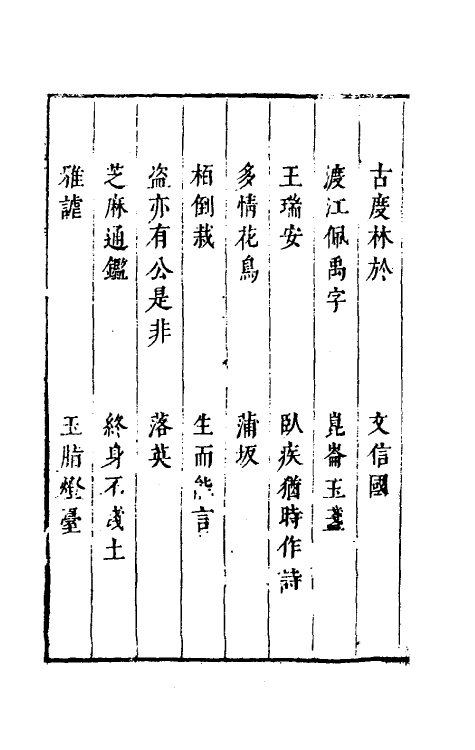 古度林於　文信國
渡江佩禹字　崑崙玉盞
王瑞安　臥疾猶時作詩
多情花鳥　蒲坂
栢倒栽　生而能言
盗亦有公是非　落英
芝麻通鑑　終身不淺土
雅謔　玉脂燈臺